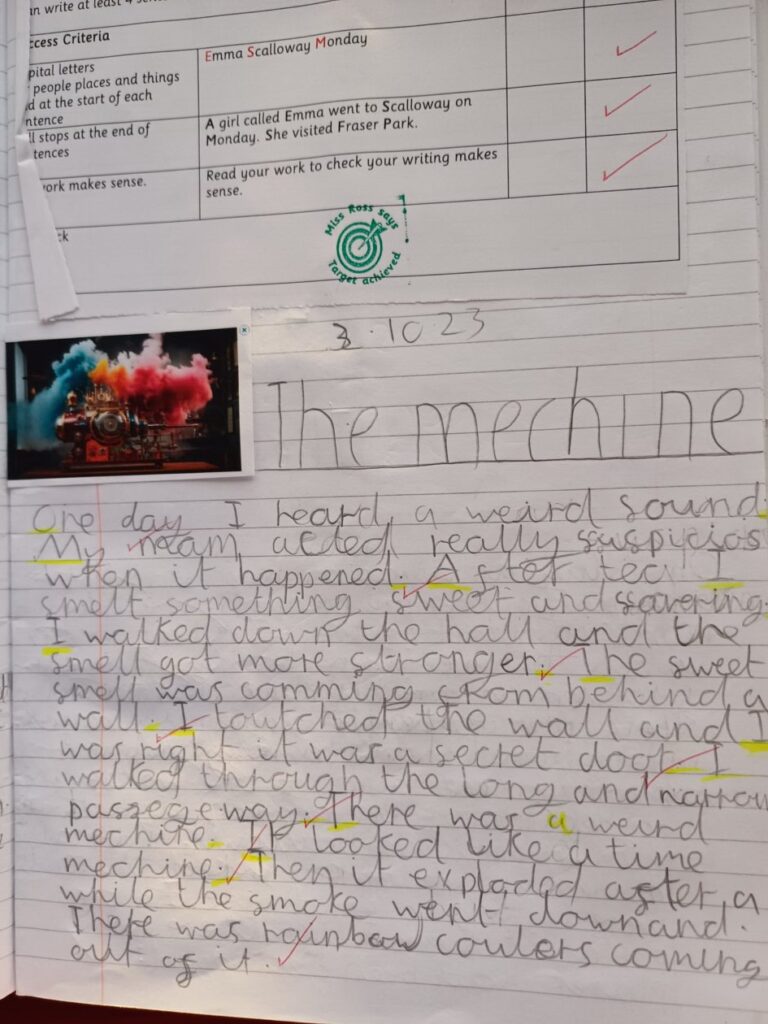 an write at least 4 sen
ccess Criteria
pital letters
people places and things
d at the start of each
ntence
Emma Scalloway Monday
ll stops at the end of
tences
A girl called Emma went to Scalloway on
Monday. She visited Fraser Park.
ork makes sense.
Read your work to check your writing makes
sense.
ck
Miss Ross says
Target achieved
3.10.23
The mechine
One day I heard a weird sound.
My mam acted really suspicios
when it happened. After tea I
smelt something sweet and savering.
I walked down the hall and the
smell got more stronger. The sweet
smell was comming from behind a
wall. I toutched the wall and I
was right it was a secret door. I
walked through the long and narrow
passegeway. There was a weird
mechine. It looked like a time
mechine. Then it exploded after a
while the smoke went down and.
There was rainbow coulers coming
out of it.